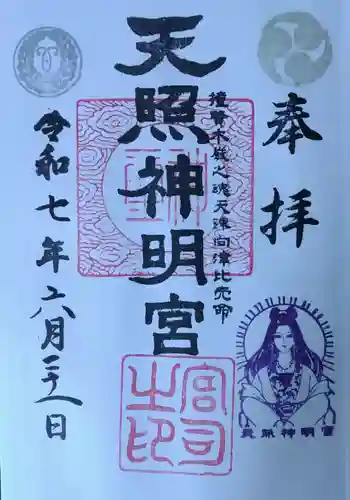 奉拝
撞賢木厳之魂天疎向津比売命
天照神明宮
令和七年六月
日
天照神明宮
宮司
之印